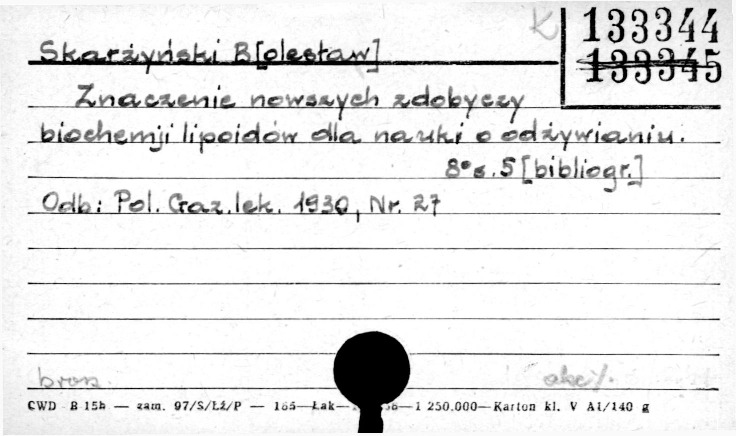 K 133344
133345
Skarżyński B[olesław]
Znaczenie nowszych zdobyczy
biochemji lipoidów dla nauki o odżywianiu.
8° s. 5 [bibliogr.]
Odb: Pol. Gaz. lek. 1930, Nr. 27
brosz.
CWD B 15h — zam. 97/S/Łż/P — Łak— —1 250.000—Karton kl. V A1/140 g